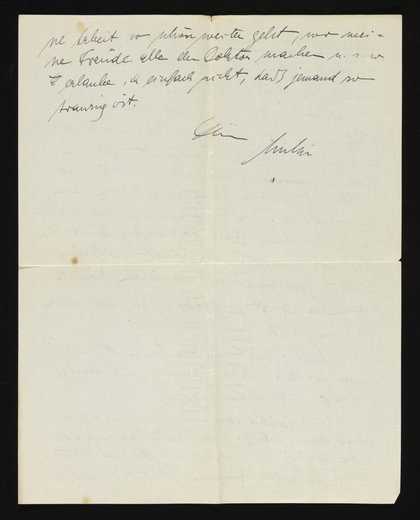 ne Arbeit so schön weiter geht, wo mei-
ne Freunde alle den Doktor machen u. s. w
erlaube, ich einfach nicht, daß jemand so
traurig ist.
Dein